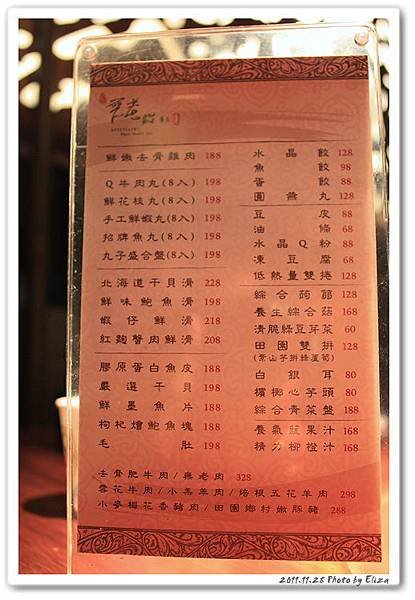 無老鍋
鮮嫩去骨雞肉 188
Q牛肉丸(8入) 198
鮮花枝丸(8入) 198
手工鮮蝦丸(8入) 198
招牌魚丸(8入) 198
丸子盛合盤(8入) 198
北海道干貝滑 228
鮮味鮑魚滑 198
蝦仔鮮滑 218
紅麴蟹肉鮮滑 208
膠原蛋白魚皮 188
嚴選干貝 198
鮮墨魚片 188
枸杞燴鮑魚塊 188
毛肚 198
水晶餃 128
魚餃 98
蛋餃 88
圓燕丸 128
豆皮 88
油條 68
水晶Q粉 88
凍豆腐 68
低熱量雙捲 128
綜合菇 128
養生綜合菇 168
清脆綠豆芽菜 60
田園雙拼 128
(紫山芋拼綠蘆筍)
白銀耳 80
檳榔心芋頭 80
綜合青菜盤 188
養氣蔬果汁 168
精力柳橙汁 168
去骨肥牛肉/無老肉 328
雪花牛肉/小羔羊肉/培根五花羊肉 298
小麥梅花香豬肉/田園鄉村嫩豚豬 288
2011.11.25 Photo by Eliza